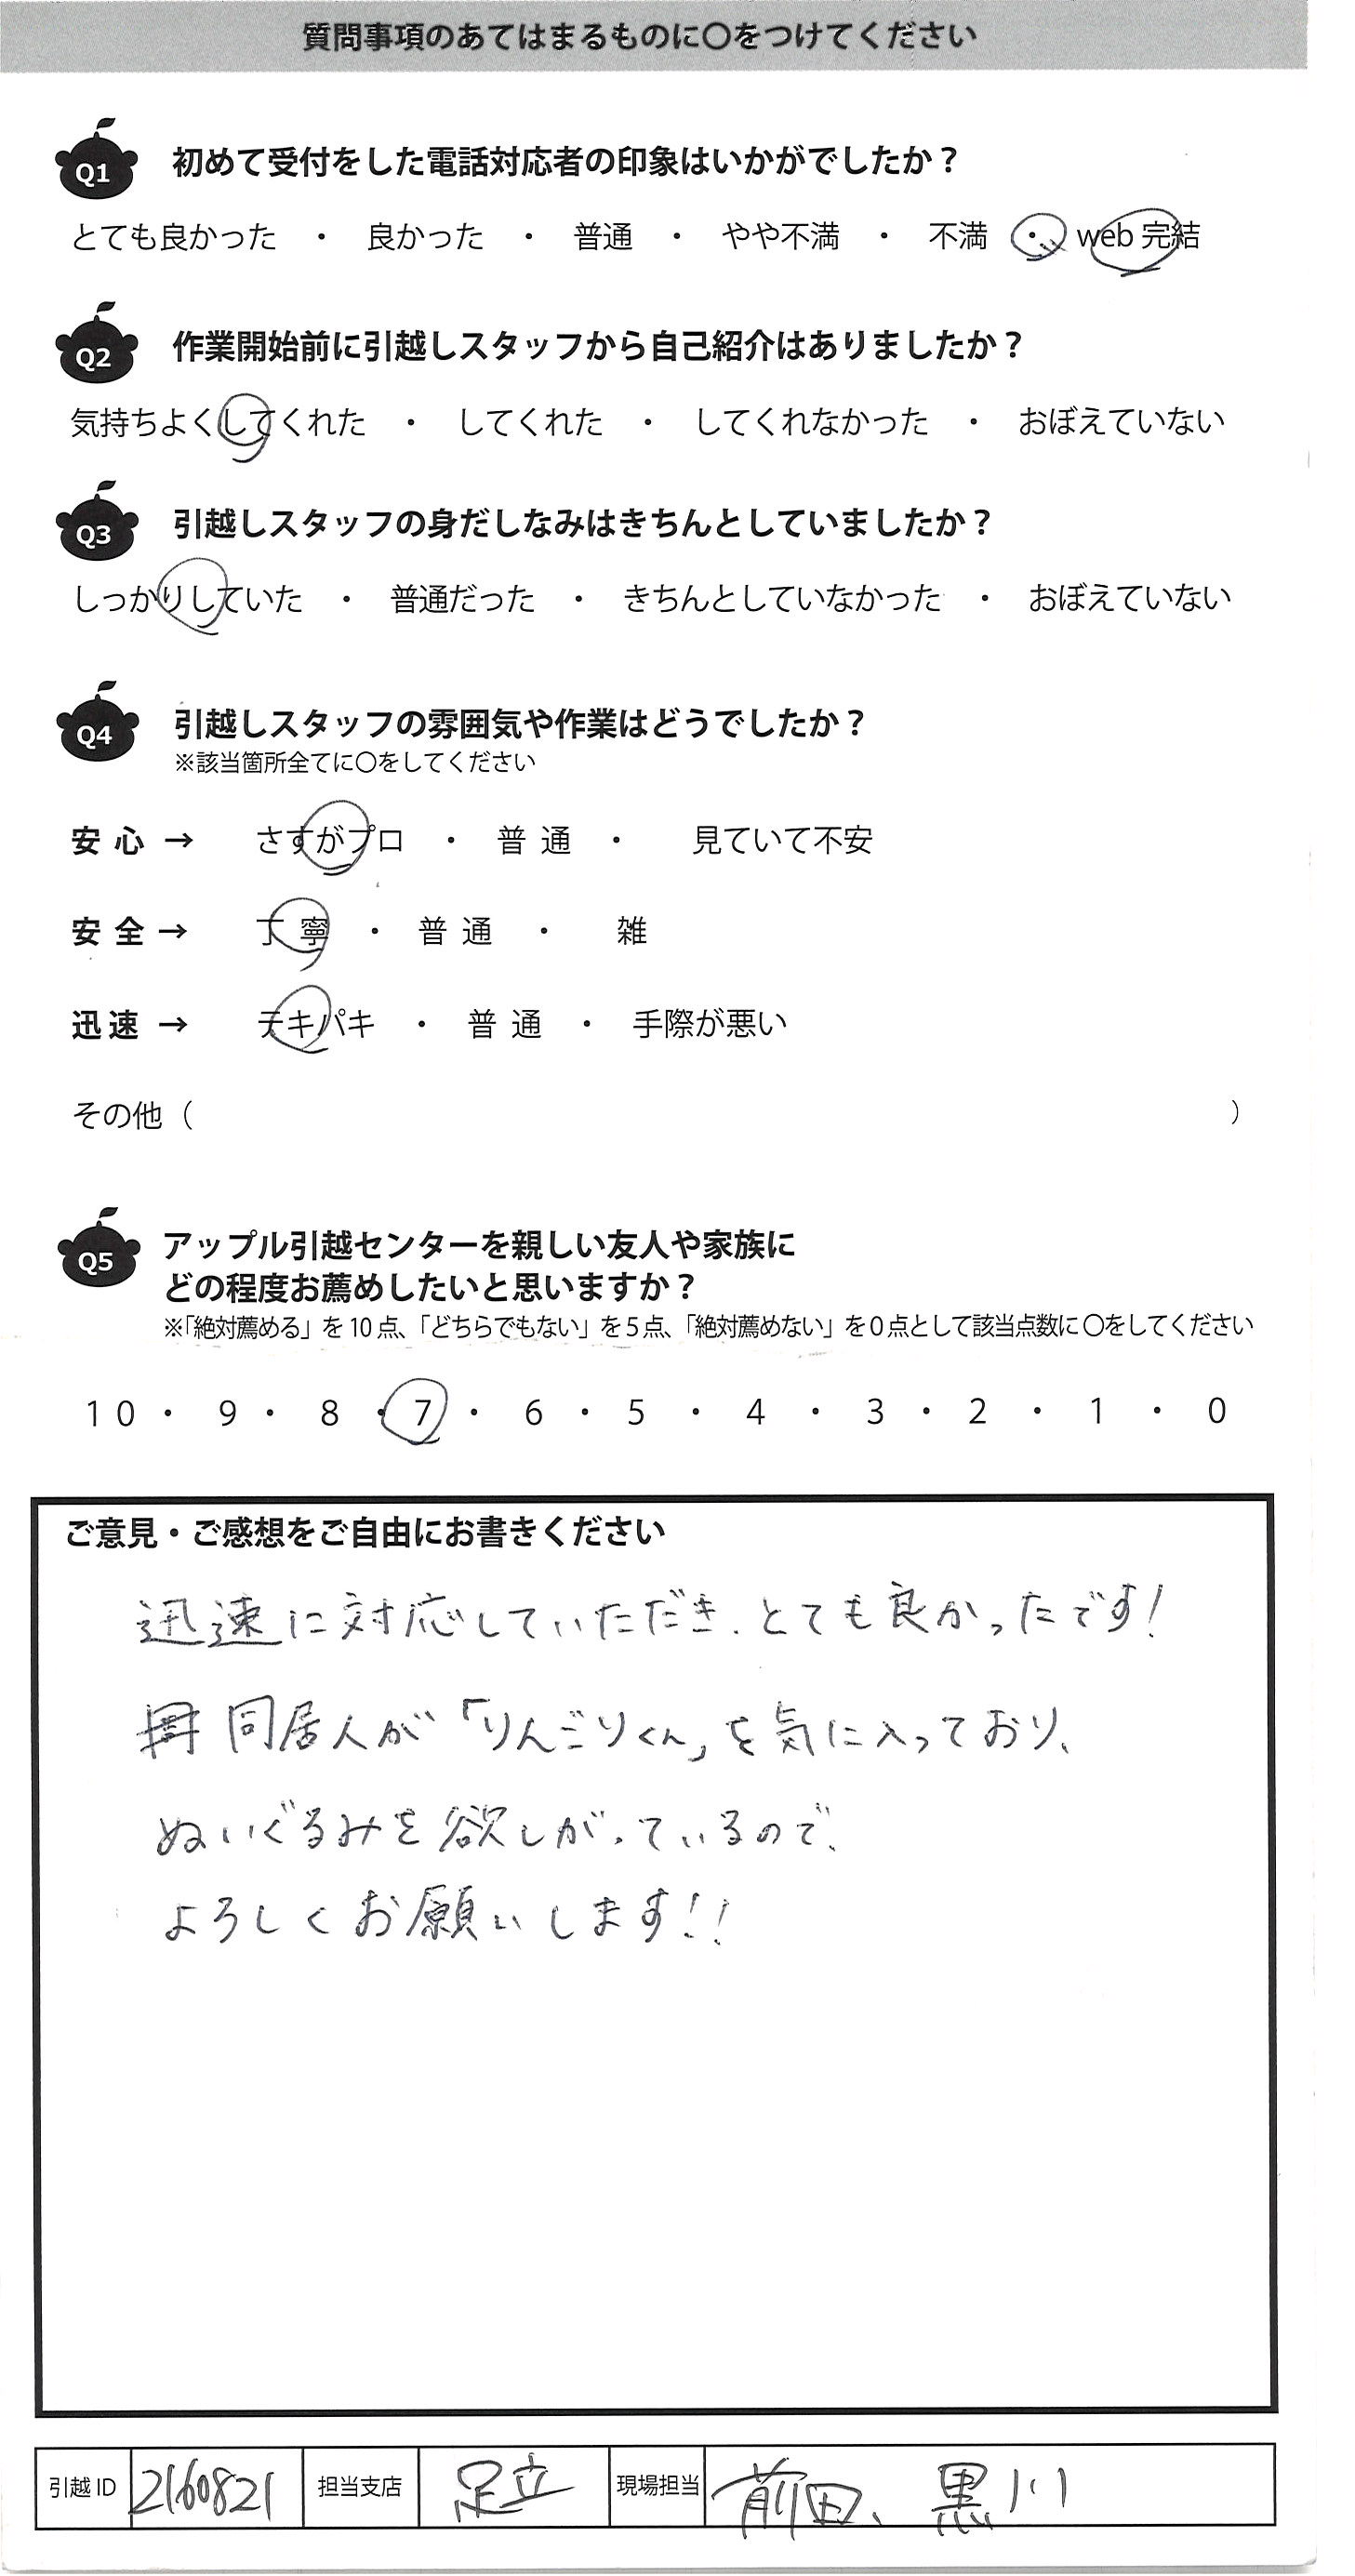 質問事項のあてはまるものに〇をつけてください
Q1 初めて受付をした電話対応者の印象はいかがでしたか？
とても良かった ・ 良かった ・ 普通 ・ やや不満 ・ 不満 ・ web 完結
Q2 作業開始前に引越しスタッフから自己紹介はありましたか？
気持ちよくしてくれた ・ してくれた ・ してくれなかった ・ おぼえていない
Q3 引越しスタッフの身だしなみはきちんとしていましたか？
しっかりしていた ・ 普通だった ・ きちんとしていなかった ・ おぼえていない
Q4 引越しスタッフの雰囲気や作業はどうでしたか？
※該当箇所全てに〇をしてください
安 心 → さすがプロ ・ 普 通 ・ 見ていて不安
安 全 → 丁 寧 ・ 普 通 ・ 雑
迅 速 → テキパキ ・ 普 通 ・ 手際が悪い
その他（ ）
Q5 アップル引越センターを親しい友人や家族に
どの程度お薦めしたいと思いますか？
※「絶対薦める」を 10 点、「どちらでもない」を 5 点、「絶対薦めない」を 0 点として該当点数に 〇をしてください
10 ・ 9 ・ 8 ・ 7 ・ 6 ・ 5 ・ 4 ・ 3 ・ 2 ・ 1 ・ 0
ご意見・ご感想をご自由にお書きください
迅速に対応していただき、とても良かったです！
同居人が「りんごりくん」を気に入っており、
ぬいぐるみを欲しがっているので、
よろしくお願いします！！
引越 ID 2160821 担当支店 足立 現場担当 前田、黒川